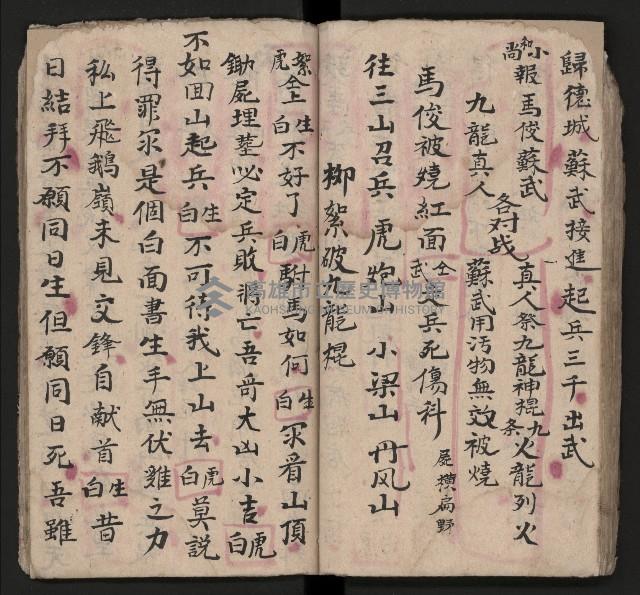 歸德城 蘇武接進 起兵三千出武
小和尚報馬俊蘇武 真人祭九龍神棍 九条火龍列火
九龍真人 各对战 蘇武用污物無效被燒
馬俊被燒紅面 仝武 兵死傷科 屍横扁野
往三山召兵 虎炮山 小梁山 丹风山
柳絮破九龍棍
絮虎仝上 生白 不好了 虎白 駙馬如何 生白 罙看山頂
鋤屍埋塟必定兵敗將亡吾奇大凶小吉 虎白
不如回山起兵 生白 不可待我上山去 虎白 莫說
得罪罙是個白面書生手無伏雞之力
私上飛鵝嶺未見交鋒自献首 生白 昔
日結拜不願同日生但願同日死吾雖
高雄市立歷史博物館
KAOHSIUNG MUSEUM OF HISTORY